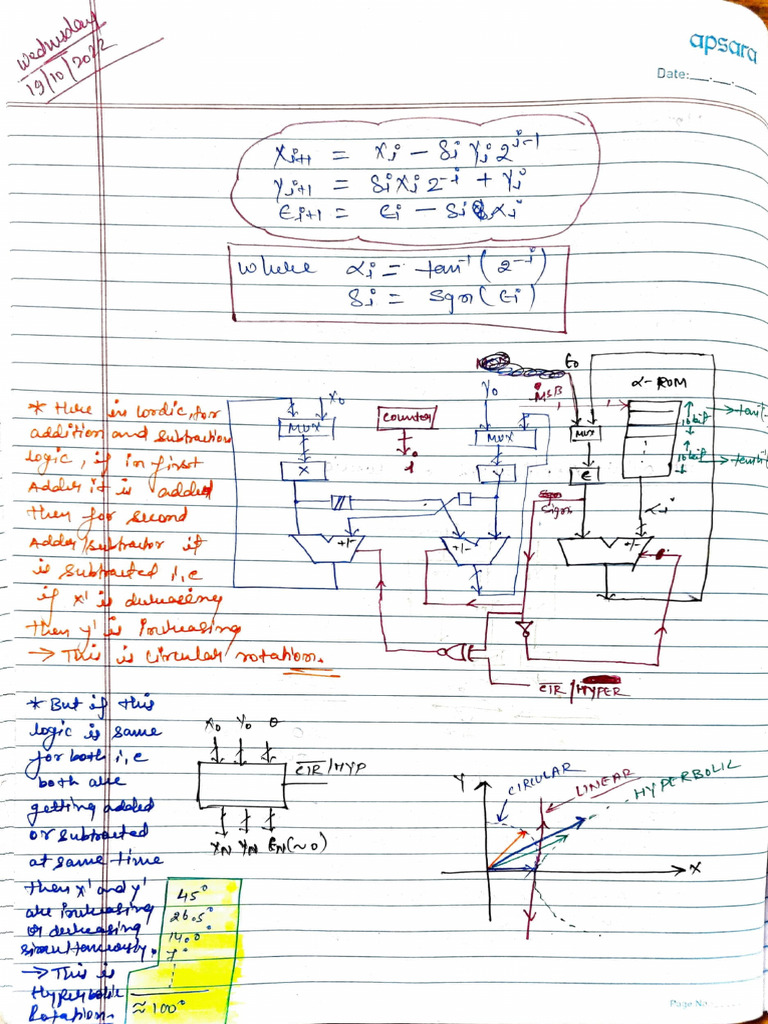 Wednesday
19/10/2022
apsara
Date:
Xi+1 = Xi - δi Yi 2^i-1
Yi+1 = δi Xi 2^-i + Yi
Єi+1 = Єi - δi αi
where αi = tan^-1 (2^-i)
δi = Sgn(Єi)
* Here in Cordic, for
addition and subtraction
logic, if in first
Adder it is added
then for second
Adder/subtractor it
is subtracted i,e
if x' is decreasing
then y' is increasing
→ This is circular rotation.
X0
MUX
X
counter
i
Y0
MUX
Y
MSB
Є0
MUX
Є
Sign
α-ROM
16 bit
16 bit
αi
+/-
+/-
+/-
CIR/HYPER
* But if this
logic is same
for both i,e
both are
getting added
or subtracted
at same time
then x' and y'
are increasing
or decreasing
simultaneously.
→ This is
Hyperbolic
Rotation.
45°
26.5°
14.0°
7°
≈100°
X0 Y0 θ
CIR/HYP
XN YN ЄN(~0)
Y
CIRCULAR
LINEAR
HYPERBOLIC
X
Page No.